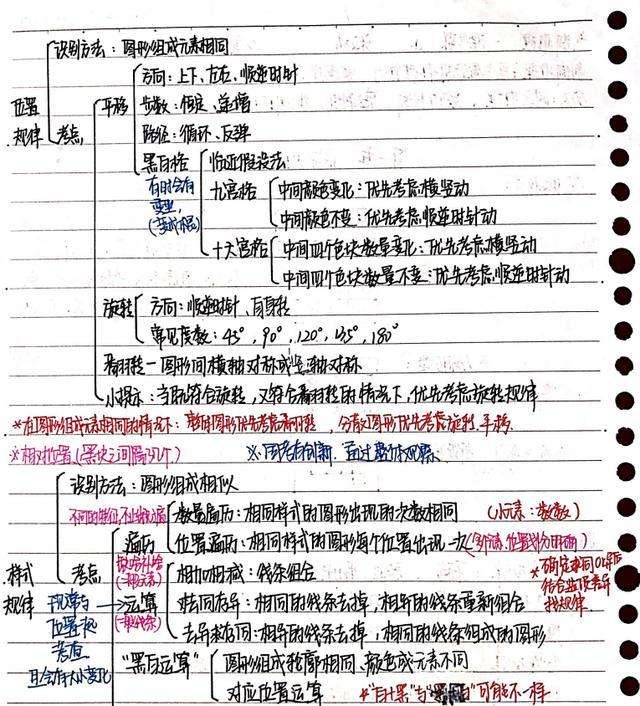 识别方法：图形组成元素相同
位置规律
考点
平移
方向：上下、左右、顺逆时针
步数：恒定、递增
路径：循环、反弹
黑白格
临近假设法
有时会有
九宫格
中间颜色变化：优先考虑横竖动
中间颜色不变：优先考虑顺逆时针动
十六宫格
中间四个色块数量变化：优先考虑横竖动
中间四个色块数量不变：优先考虑顺逆时针动
旋转
方向：顺逆时针、自身转
常见度数：45°，90°，120°，135°，180°
翻转－图形间横轴对称或竖轴对称
小提示：当既符合旋转，又符合翻转的情况下，优先考虑旋转规律
*在图形组成元素相同的情况下：整的图形优先考虑翻转，分散图形优先考虑旋转、平移.
*相对位置(黑块之间隔几个)
通过整体观察
识别方法：图形组成相似
样式规律
考点
遍历
数量遍历：相同样式的图形出现的次数相同
(小元素：数数)
位置遍历：相同样式的图形每个位置出现一次
运算
相加相减：线条组合
去同存异：相同的线条去掉，相异的线条重新组合
去异求同：相异的线条去掉，相同的线条组成的图形
*确定求同or求异
找规律
平常与
位置规
考查
且会有大小变化
“黑白运算”
图形组成轮廓相同、颜色或元素不同
对应位置运算
*“白+黑”与“黑+白”可能不一样